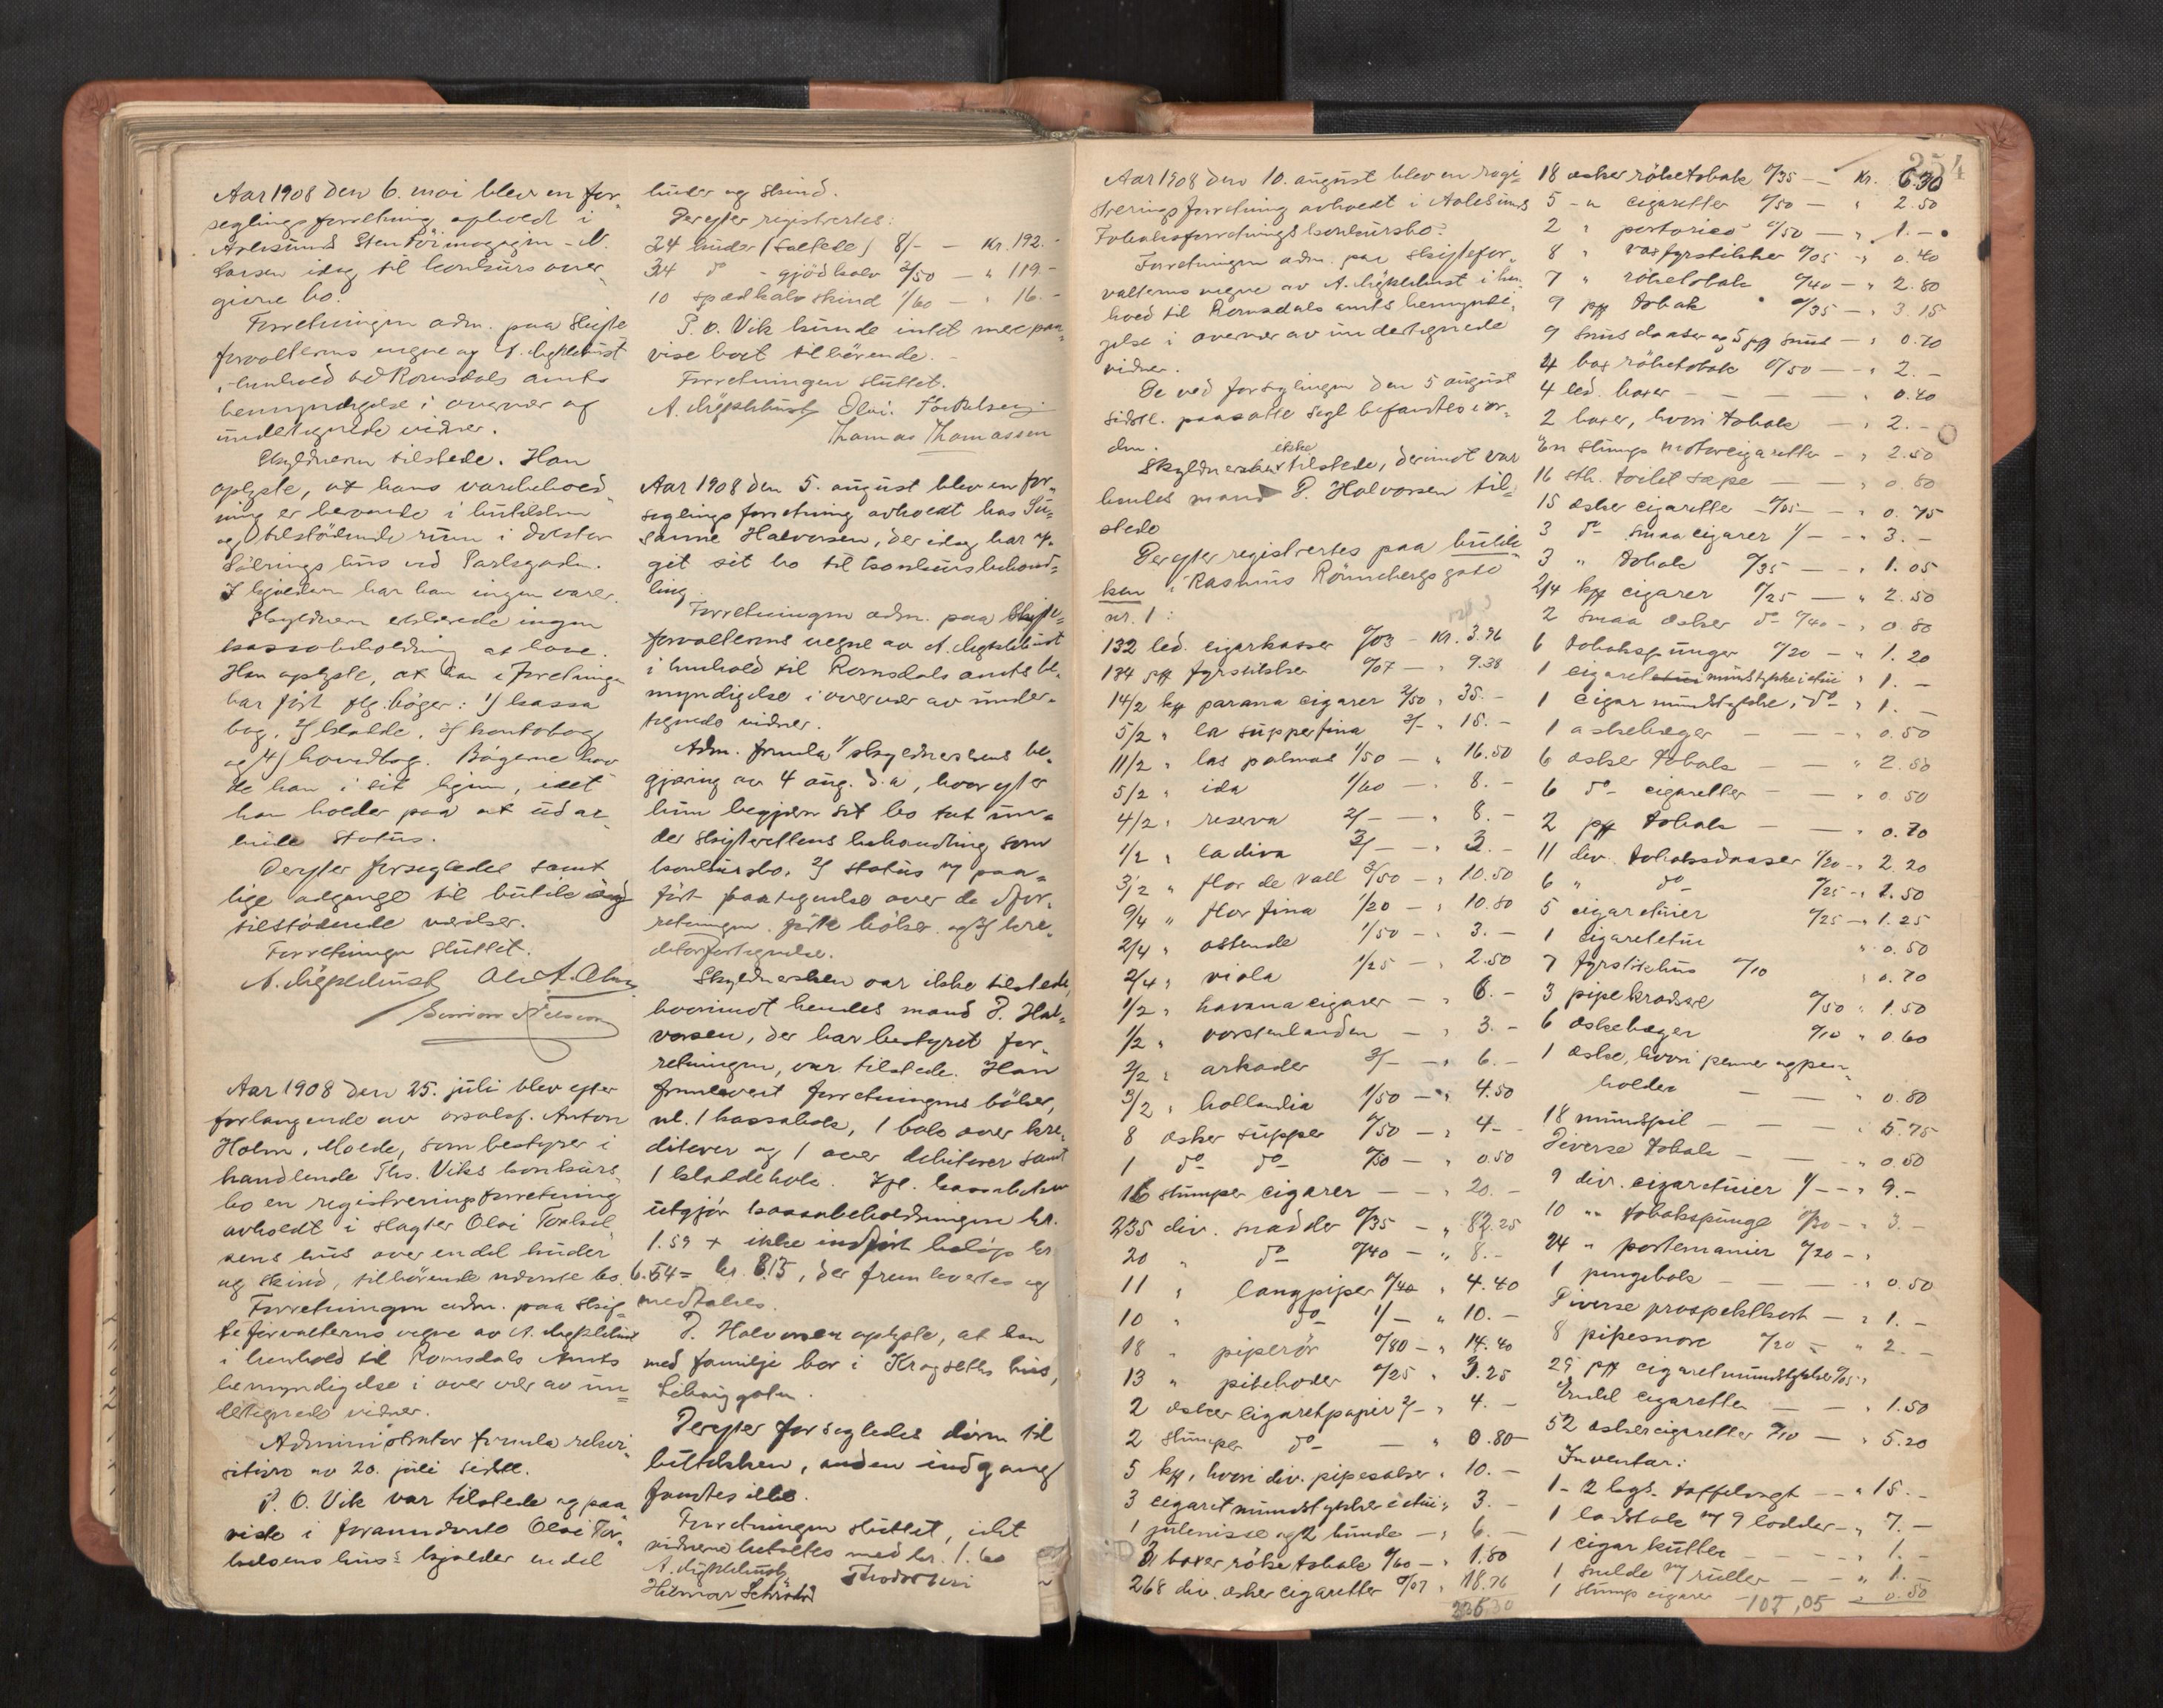 Aar 1908 den 6. mai blev en for-
seglingsforretning avholdt i
Aalesunds Stentöimagazin - N.
Larsen idag til konkurs over-
givne bo.
Forretningen adm. paa skifte
forvalterens vegne af A. Myklebust
i henhold til Romsdals amts
bemyndigelse i overvær af
undertegnede vidner.
Skyldneren tilstede. Han
oplyste, at hans varebehold-
ning er beroende i butikken
og tilstödende rum i doktor
hus ved Parkgaden.
I kjælderen har han ingen varer.
Skyldneren erklærede ingen
kassabeholdning at have.
Han oplyste, at han i forretningen
har fört flg. böger: 1) kassa
bog, 2) kladde, 3) kontobog
og 4) hovedbog. Bögerne hav
de han i sit hjem, idet
han holder paa at udar-
beide status.
Derefter forsegledes samt
lige adgange til butik og
tilstödende værelser.
Forretningen sluttet.
A. Myklebust
Aar 1908 den 25. juli blev efter
forlangende av Anton
Holm, Molde, som bestyrer i
handlende Ths. Viks konkurs-
bo en registreringsforretning
avholdt i slagter Olai Torkil
sens hus over endel huder
og skind, tilhörende nævnte bo.
Forretningen adm. paa skif-
teforvalterens vegne av A. Myklebust
i henhold til Romsdals Amts
bemyndigelse i overvær av un-
dertegnede vidner.
Administrator fremla rekvi-
sition av 20. juli sidstl.
P. O. Vik var tilstede og paa
viste i forannævnte Olai Tor-
kelsens hus's kjælder endel
huder og skind.
Derefter registrertes:
24 huder (saltede) 8/- - Kr. 192.-
34 do - gjödkalv 3/50 - " 119.-
10 spædkalv skind 1/60 - " 16.-
P. O. Vik kunde intet mer paa-
vise boet tilhörende.
Forretningen sluttet.
A. Myklebust Olai. Torkelsen
Thomas Thomassen
Aar 1908 den 5. august blev en for-
seglingsforretning avholdt hos Su-
sanne Halvorsen, der idag har op-
git sit bo til konkursbehand-
ling.
Forretningen adm. paa skifte-
forvalterens vegne av A. Myklebust
i henhold til Romsdals amts be-
myndigelse i overvær av under-
tegnede vidner.
Adm. fremla 1/ skyldnerskens be-
gjæring av 4 aug. d.a, hvorefter
hun begjærer sit bo tat un-
der skifterettens behandling som
konkursbo, 2/ status m/ paa-
fört fortegnelse over de i for-
retningen förte böker og 3/ kre-
ditorfortegnelse.
Skyldnersken var ikke tilstede,
hvorimot hendes mand P. Hal-
vorsen, der har bestyret for-
retningen, var tilstede. Han
fremleverte forretningens böker,
nl. 1 kassabok, 1 bok over kre-
ditorer og 1 over debitorer samt
1 kladdebok. Ifl. kassaboken
utgjör kassabeholdningen kr.
1.59 + ikke indfört belöp kr
6.54 = kr. 8.13, der fremlevertes og
medtokes.
P. Halvorsen oplyste, at han
med familje bor i Kragseths hus,
Derefter forsegledes dören til
butikken, anden indgang
fandtes ikke.
Forretningen sluttet, idet
vidnerne betaltes med kr. 1.60
A. Myklebust
Hilmar Schröder
254
Aar 1908 den 10. august blev en regi-
streringsforretning avholdt i Aalesunds
Tobaksforretnings konkursbo.
Forretningen adm. paa skiftefor-
valterens vegne av A. Myklebust i hen-
hold til Romsdals amts bemyndi-
gelse i overvær av undertegnede
vidner.
De ved forseglingen den 5 august
sidstl. paasatte segl befandtes i or-
den.
Skyldnersken ikke tilstede, derimot var
hendes mand P. Halvorsen til-
stede
Derefter registrertes paa butik-
ken i Rasmus Rönnebergs gate
nr. 1:
132 led. cigarkasser 0/03 - kr. 3.96
134 pk fyrstikker 0/07 - " 9.38
14/2 ks parana cigarer 2/50 " 35.-
5/2 " la suppertina 3/- " 15.-
11/2 " las palmas 1/50 - " 16.50
5/2 " ida 1/60 - " 8.-
4/2 " reserva 2/- - " 8.-
1/2 " ladiva 3/- - " 3.-
3/2 " flor de vall 3/50 - " 10.50
9/4 " flor fina 1/20 - " 10.80
2/4 " ostende 1/50 - " 3.-
2/4 " viola 1/25 - " 2.50
1/2 " havana cigarer - " 6.-
1/2 " vorstenlanden - " 3.-
2/2 " arkader 3/- - " 6.-
3/2 " hollandia 1/50 - " 4.50
8 æsker supper 0/50 - " 4-
1 do do 0/50 - " 0.50
16 stumper cigarer - - " 20.-
235 div. snadder 0/35 - " 82.25
20 " do 0/40 - " 8.-
11 " langpiper 0/40 " 4.40
10 " do 1/- " 10.-
18 " piperör 0/80 - " 14.40
13 " pipehoder 0/25 " 3.25
2 æsker cigaretpapir 2/- " 4.-
2 stumper do - " 0.80
5 ks, hvori div. pipesaker " 10.-
3 cigaretmundstykker i etui " 3.-
1 julenisse og 2 hunde - " 6.-
3 boxer röketobak 0/60 - " 1.80
268 div. æsker cigaretter 0/07 " 18.76
18 æsker röketobak 0/35 - Kr. 6.30
5 - " cigaretter 0/50 - " 2.50
2 " portorico 0/50 - " 1.-
8 " voxfyrstikker 0/05 - " 0.40
7 " röketobak 0/40 - " 2.80
9 pk tobak 0/35 - " 3.15
9 snusdaaser og 5 pk snus - " 0.70
4 box röketobak 0/50 - " 2.-
4 led. boxer - - - " 0.40
2 boxer, hvori tobak - " 2.-
En stump motorcigaretter - " 2.50
16 stk. toilet sæpe - - " 0.80
15 æsker cigaretter 0/05 - " 0.75
3 do smaa cigarer 1/- - " 3.-
3 " tobak 0/35 - " 1.05
2/4 ks cigarer 1/25 - " 2.50
2 smaa æsker do 0/40 - " 0.80
6 tobakspunger 0/20 - " 1.20
1 cigaretmundstykke i etui " 1.-
1 cigarmundstykke, i do " 1.-
1 askebæger - - - " 0.50
6 æsker tobak - - " 2.50
6 do cigaretter - - " 0.50
2 pk tobak - - " 0.70
11 div. tobaksdaaser 0/20 - " 2.20
6 " do 0/25 - " 1.50
5 cigaretuier 0/25 - " 1.25
1 cigaretetui " 0.50
7 fyrstikhus 0/10 " 0.70
3 pipekradser 0/50 " 1.50
6 askebæger 0/10 " 0.60
1 æske, hvori penner og pen-
holder - - " 0.80
18 mundspil - - - " 5.75
Diverse tobak - - " 0.50
9 div. cigaretuier 1/- - " 9.-
10 " tobakspunge 0/30 - " 3.-
24 " portemonæer 0/20 - "
1 pengebok - - - " 0.50
Diverse prospektkort - " 1.-
8 pipesnore 0/20 - " 2.-
25 pk cigaretmundstykker 0/05 "
Endel cigaretter - - " 1.50
52 æsker cigaretter 0/10 - " 5.20
Inventar:
1- 2 kgs. taffelvegt - " 15.-
1 lodstok m/ 9 lodder - " 7.-
1 cigarkutter - - " 1.-
1 snelde m/ ruller - - " 1.-
1 stump cigarer " 0.50
107,05